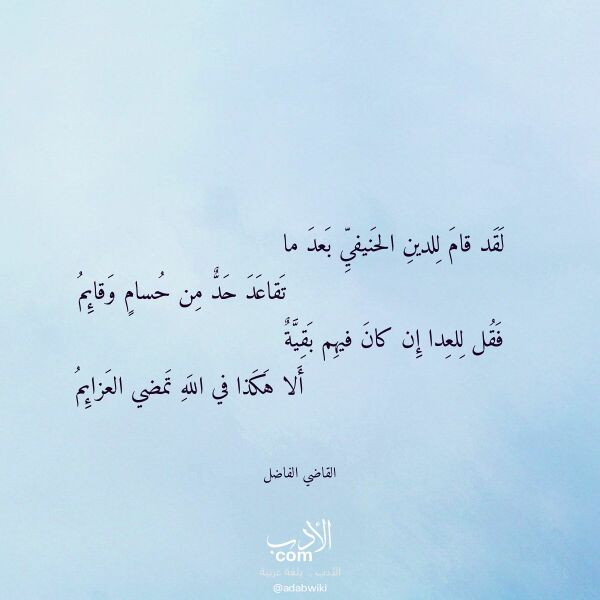 لَقَد قامَ لِلدينِ الحَنيفيِّ بَعدَ ما
تَقاعَدَ حَدٌّ مِن حُسامٍ وَقائِمُ
فَقُل لِلعِدا إِن كانَ فيهِم بَقِيَّةٌ
أَلا هَكَذا في اللَهِ تَمضي العَزائِمُ
القاضي الفاضل
الأدب
com
الأدب .. بلغة عربية
@adabwiki